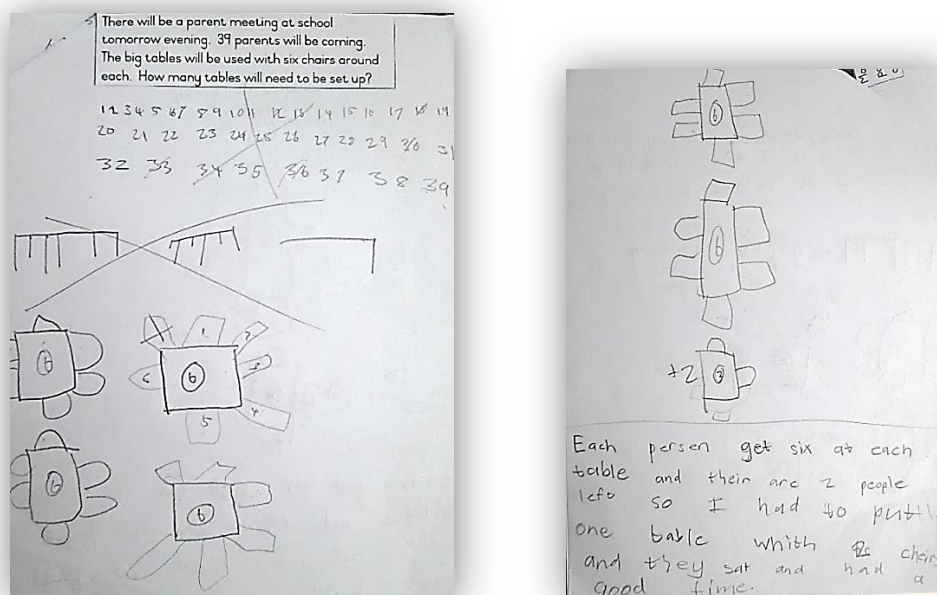 There will be a parent meeting at school
tomorrow evening. 39 parents will be coming.
The big tables will be used with six chairs around
each. How many tables will need to be set up?
1 2 3 4 5 6 7 8 9 10 11 12 13 14 15 16 17 18 19
20 21 22 23 24 25 26 27 28 29 30 31
32 33 34 35 36 37 38 39
6
1
2
3
4
5
6
6
6
6
6
6
+2
2
Each persen get six at each
table and their are 2 people
left so I had to putt
one table whith chein
and they sat and had a
good time.